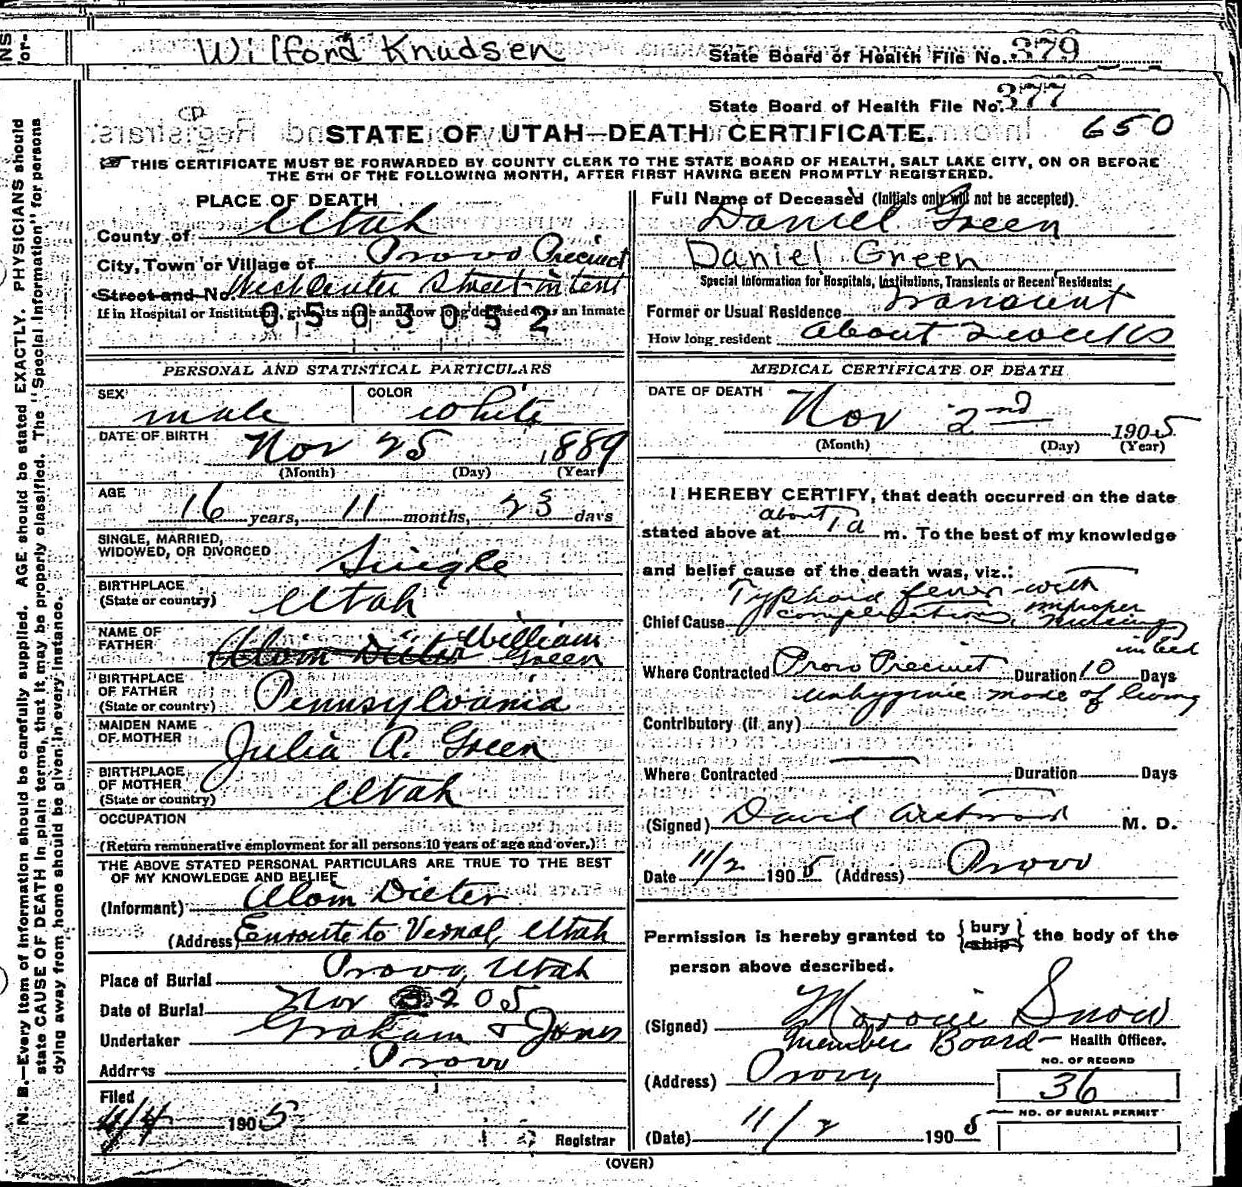 NS
or-
Wilford Knudsen
State Board of Health File No. 379
State Board of Health File No. 377
650
STATE OF UTAH—DEATH CERTIFICATE.
THIS CERTIFICATE MUST BE FORWARDED BY COUNTY CLERK TO THE STATE BOARD OF HEALTH, SALT LAKE CITY, ON OR BEFORE
THE 5TH OF THE FOLLOWING MONTH, AFTER FIRST HAVING BEEN PROMPTLY REGISTERED.
PLACE OF DEATH
County of Utah
City, Town or Village of Provo Precinct
Street and No. West Center Street in tent
If in Hospital or Institution, give its name and how long deceased was an Inmate
0503052
PERSONAL AND STATISTICAL PARTICULARS
SEX male
COLOR white
DATE OF BIRTH Nov 25 1889
(Month) (Day) (Year)
AGE
16 years, 11 months, 23 days
SINGLE, MARRIED,
WIDOWED, OR DIVORCED Single
BIRTHPLACE
(State or country) Utah
NAME OF
FATHER Alom Dieter William
Green
BIRTHPLACE
OF FATHER
(State or country) Pennsylvania
MAIDEN NAME
OF MOTHER Julia A. Green
BIRTHPLACE
OF MOTHER
(State or country) Utah
OCCUPATION
(Return remunerative employment for all persons 10 years of age and over.)
THE ABOVE STATED PERSONAL PARTICULARS ARE TRUE TO THE BEST
OF MY KNOWLEDGE AND BELIEF
(Informant) Alom Dieter
(Address) Enroute to Vernal, Utah
Place of Burial Provo, Utah
Date of Burial Nov 2 05
Undertaker Graham & Jones
Address Provo
Filed
11/4 1905
Registrar
Full Name of Deceased (Initials only will not be accepted).
Daniel Green
Daniel Green
Special Information for Hospitals, Institutions, Transients or Recent Residents:
Former or Usual Residence Transient
How long resident about 2 weeks
MEDICAL CERTIFICATE OF DEATH
DATE OF DEATH
Nov 2nd 1905
(Month) (Day) (Year)
I HEREBY CERTIFY, that death occurred on the date
stated above at about 1 a m. To the best of my knowledge
and belief cause of the death was, viz.:
Typhoid fever with
Chief Cause complications, improper
nursing
in bed
Where Contracted Provo Precinct Duration 10 Days
unhygienic mode of living
Contributory (if any)
Where Contracted Duration Days
(Signed) David M. D.
Date 11/2 1905 (Address) Provo
Permission is hereby granted to {bury
ship} the body of the
person above described.
(Signed) Moroni Snow
Member Board Health Officer.
(Address) Provo
NO. OF RECORD
36
NO. OF BURIAL PERMIT
(Date) 11/2 1905
(OVER)
N. B.—Every item of information should be carefully supplied. AGE should be stated EXACTLY. PHYSICIANS should
state CAUSE OF DEATH in plain terms, that it may be properly classified. The "Special Information" for persons
dying away from home should be given in every instance.